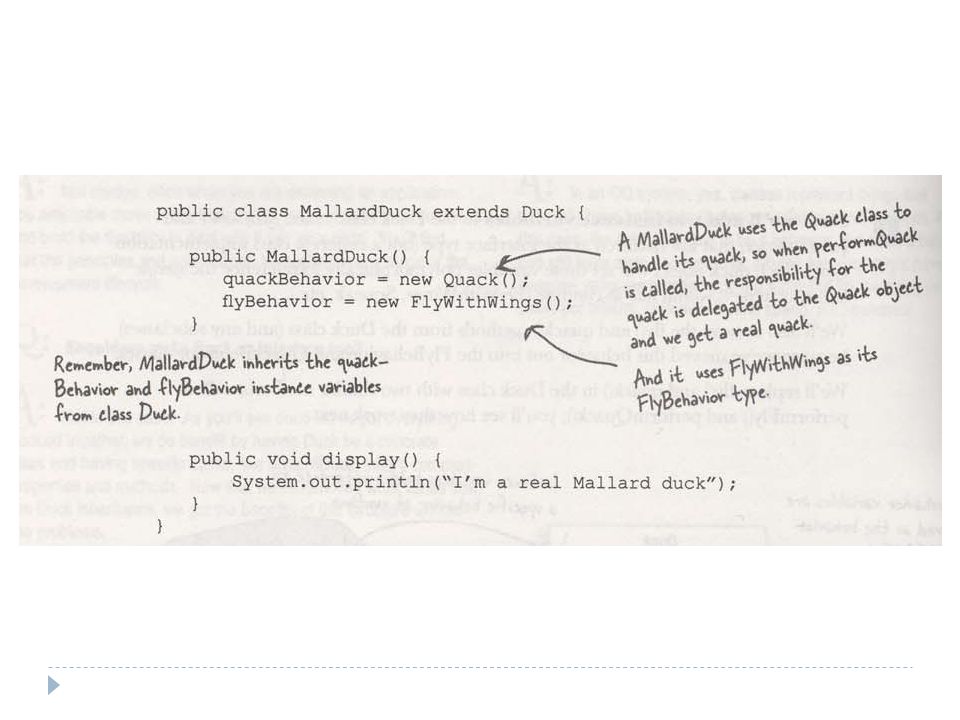 public class MallardDuck extends Duck {
public MallardDuck() {
quackBehavior = new Quack();
flyBehavior = new FlyWithWings();
}
A MallardDuck uses the Quack class to
handle its quack, so when performQuack
is called, the responsibility for the
quack is delegated to the Quack object
and we get a real quack.
And it uses FlyWithWings as its
FlyBehavior type.
Remember, MallardDuck inherits the quack-
Behavior and flyBehavior instance variables
from class Duck.
public void display() {
System.out.println(“I’m a real Mallard duck”);
}
}